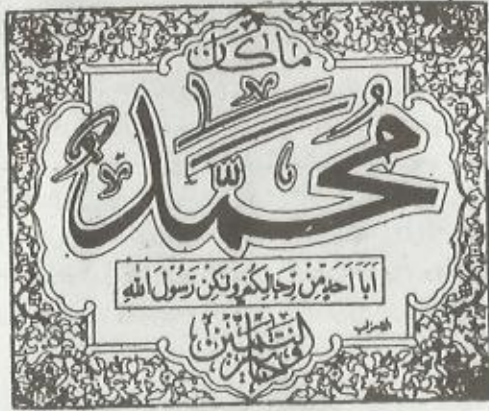 ما كان
محمد
أبا أحد من رجالكم ولكن رسول الله
وخاتم النبيين
الاحزاب